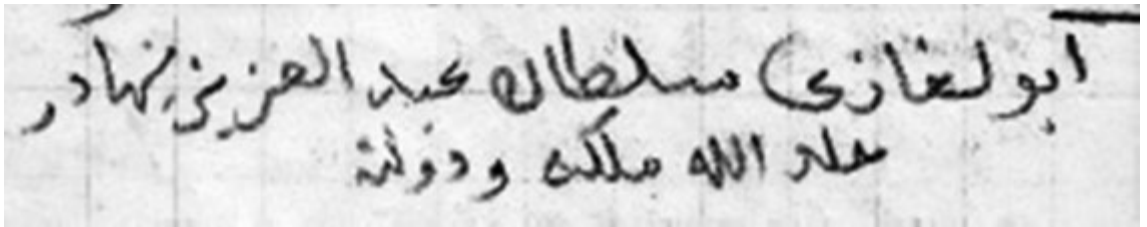 ابولغازی سلطان عبد العزیز بهادر
خلد الله ملکه و دولته